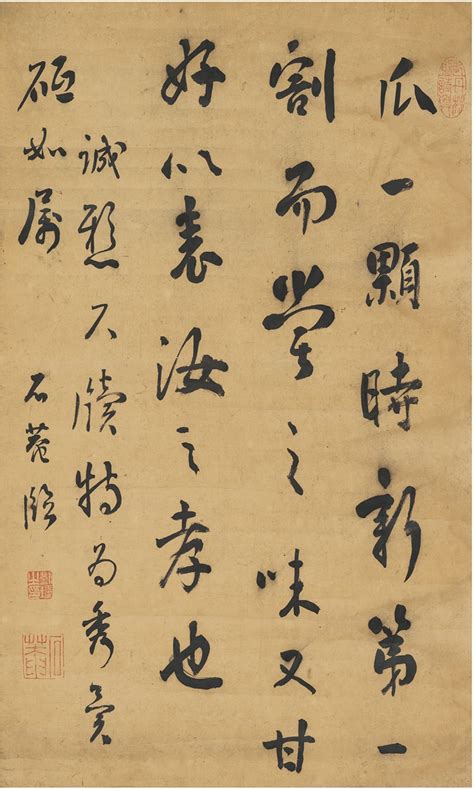 瓜一顆時新第一
割而嘗之味又甘
好以表汝之孝也
誠懸尺牘特為秀異
砥如屬
石菴臨